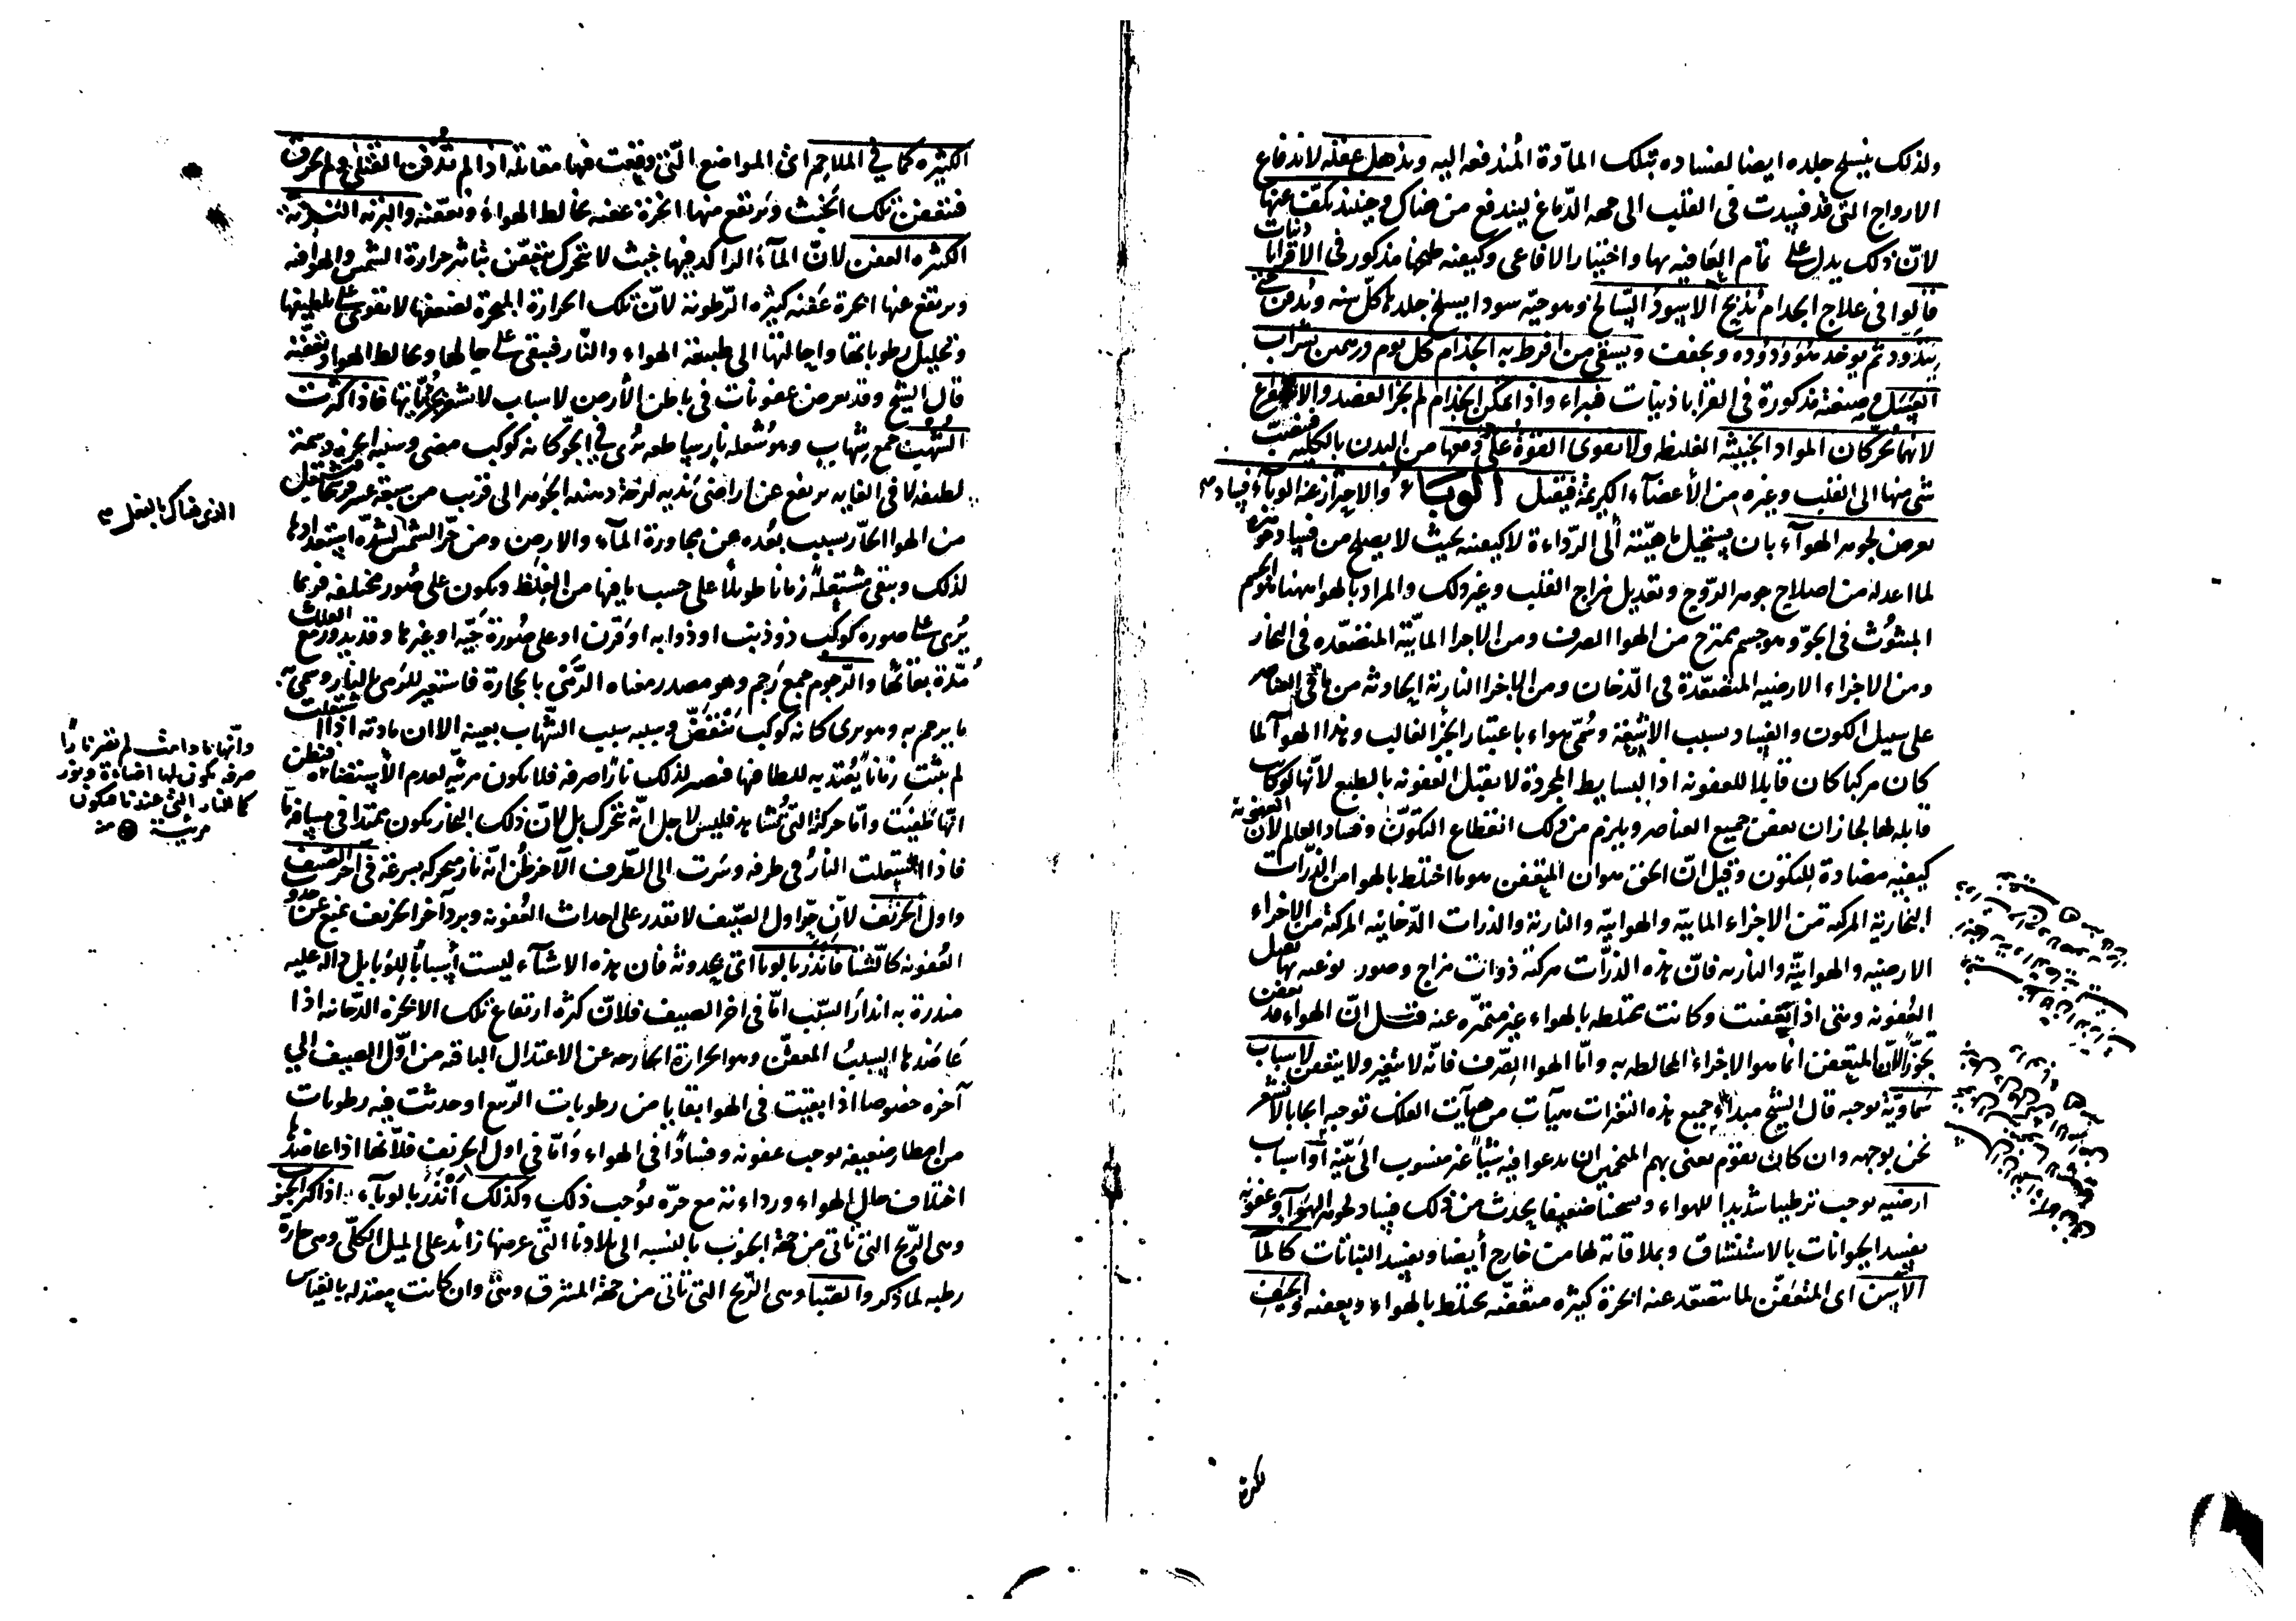 ولذلك ينسلخ جلده ايضا لفساده بتلك المادة المندفعه اليه ويذهل عقله لاندفاع
الارواح التى قد فسدت فى القلب الى جهه الدماغ ليندفع من هناك وحينئذ يكف عنها
لان ذلك يدل على تمام العافيه بها واختيار الافاعى وكيفيه طبخها مذكور فى الاقراباذينات
قالوا فى علاج الجذام يذبح الاسود السالخ وهو حية سودا يسلخ جلدها كل سنه ويدفن حتى
يتدود ثم يوخذ مع دوده ويجفف ويسقى من افرط به الجذام كل يوم درهمين بشراب
العسل وصنعته مذكورة فى القراباذينات واذا تمكن الجذام لم يجز الفصد والاستفراغ
لانهما يحركان المواد الخبيثه الغليظه ولا تقوى القوة على دفعها من البدن بالكليه فينصب
شى منها الى القلب وغيره من الأعضاء الكريمة فيقتل الوباء والاحتراز عنه الوباء فساد
يعرض لجوهر الهوآء بان يستحيل ماهيته الى الرداءة لا كيفيته بحيث لا يصلح من فساد جوهره
لما اعد له من اصلاح جوهر الروح وتعديل مزاج القلب وغير ذلك والمراد بالهوا ههنا هو الجسم
المبثوث فى الجو وهو جسم ممتزج من الهوا الصرف ومن الاجزا المائية المتصعده فى البخار
ومن الاجزاء الارضيه المتصعدة فى الدخان ومن الاجزا النارية الحادثه من باقى العناصر
على سبيل الكون والفساد بسبب الاشعة وسمى هواء باعتبار الجزء الغالب وهذا الهوآ لما
كان مركبا كان قابلا للعفونه اذ البسايط المجردة لا تقبل العفونه بالطبع لأنها لو كانت
قابله لها لجاز ان تعفن جميع العناصر ويلزم من ذلك انقطاع التكون وفساد العالم لأن العفونة
كيفيه مضادة للتكون وقيل ان الحق هو ان المتعفن هو ما اختلط بالهوا من الذرات
البخارية المركبه من الاجزاء المائيه والهوائيه والنارية والذرات الدخانيه المركبة من الاجزاء
الارضيه والهوائية والناريه فان هذه الذرات مركبة ذوات مزاج وصور نوعيه بها تقبل
العفونه وهى اذا تعفنت وكانت مختلطه بالهواء غير متميزه عنه قيل ان الهواء قد تعفن
تجوزا لان المتعفن انما هو الاجزاء المخالطه به واما الهوا الصرف فانه لا يتغير ولا يتعفن لاسباب
سماوية توجبه قال الشيخ مبداء جميع هذه التغيرات هيآت من هيآت الفلك توجبه ايجابا لا نشعر
نحن بوجهه وان كان لقوم يعنى بهم المنجمين ان يدعوا فيه شيئا غير منسوب الى بينة أو اسباب
ارضيه توجب ترطيبا شديدا للهواء وسخنا ضعيفا يحدث من ذلك فساد لجوهر الهوآ وعفونه
يفسد الحيوانات بالاستنشاق وبملاقاته لها من خارج أيضا ويفسد النباتات كالمآ
الآسن اى المتعفن لما يتصعد عنه ابخرة كثيره متعفنه يختلط بالهواء ويعفنه والجيف
الكثيره كما فى الملاحم اى المواضع التى وقعت فيها مقاتله اذا لم تدفن القتلى ولم تحرق
فتعفن تلك الجيف ويرتفع منها ابخرة عفنه يخالط الهواء وتعفنه
الكثيره العفن لان المآء الراكد فيها حيث لا يتحرك يتعفن بتاثير حرارة الشمس والهوا فيه
ويرتفع عنها ابخرة عفنه كثيره الرطوبة لان تلك الحرارة المبخرة لضعفها لا تقوى على تلطيفها
وتحليل رطوباتها واحالتها الى طبيعة الهواء والنار فيبقى على حالها ويخالط الهوا وتعفنه
قال الشيخ وقد تعرض عفونات فى باطن الأرض لاسباب لا نشعر بجزئياتها فاذا كثرت
الشهب جمع شهاب وهو شعله نار ساطعه ترى فى الجو كانه كوكب مضى وسببه ابخره دسمة
لطيفه فى الغايه يرتفع عن اراضى نديه لزجة دهنيه الجوهر الى قريب من سبعة عشر فرسخا فيشتعل
من الهوا الحار بسبب بعده عن مجاورة المآء والارض ومن حر الشمس لشدة استعدادها
لذلك ويبقى مشتعلة زمانا طويلا على حسب ما فيها من الغلظ ويكون على صور مختلفه فربما
يرى على صوره كوكب ذو ذنب او ذوابه او قرن او على صورة حيه او غيرها وقد يدور مع الفلك
مدة بقائها والرجوم جمع رجم وهو مصدر معناه الرمى بالحجارة فاستعير للرمى بالنار وسمى به
ما يرجم به وهو يرى كانه كوكب منقض وسببه سبب الشهاب بعينه الا ان مادته اذا اشتعلت
لم يثبت زمانا يعتد به للطافتها فتصير لذلك نارا صرفه فلا يكون مرئيه لعدم الأستضاءه فيظن
انها طفيت واما حركة التى تشاهد فليس لاجل انه يتحرك بل لان ذلك البخار يكون ممتدا فى مسافه ما
فاذا اشتعلت النار فى طرفه وسرت الى الطرف الآخر ظن انه نار متحركه بسرعة فى اخر الصيف
واول الخريف لأن حر اول الصيف لا يقدر على احداث العفونه وبرد آخر الخريف يمنع عن حدوث
العفونه كالشتا فانذر بالوبا اى بحدوثه فان هذه الاشيآء ليست أسبابا للوبا بل داله عليه
منذرة به انذار السبب اما فى اخر الصيف فلان كثره ارتفاع تلك الابخره الدخانيه اذا
عاضدها السبب المعفن وهو الحرارة الخارجه عن الاعتدال الباقيه من اول الصيف الى
آخره خصوصا اذا بقيت فى الهوا بقايا من رطوبات الربيع او حدثت فيه رطوبات
من امطار ضعيفه توجب عفونه وفسادا فى الهواء واما فى اول الخريف فلأنها اذا عاضدها
اختلاف حال الهواء ورداءته مع حره توجب ذلك وكذلك أنذر بالوبآء اذا كثر الجنوب
وهى الريح التى تاتى من جهة الجنوب بالنسبه الى بلادنا التى عرضها زائد على الميل الكلى وهى حارة
رطبه لما ذكر والصبا وهى الريح التى تاتى من جهة المشرق وهى وان كانت معتدله بالقياس
الذى هناك بالفعل
وانها ما دامت لم تصر نارا
صرفه يكون لها اضاءة ونور
كالنار التى عندنا فيكون
مرئية منه